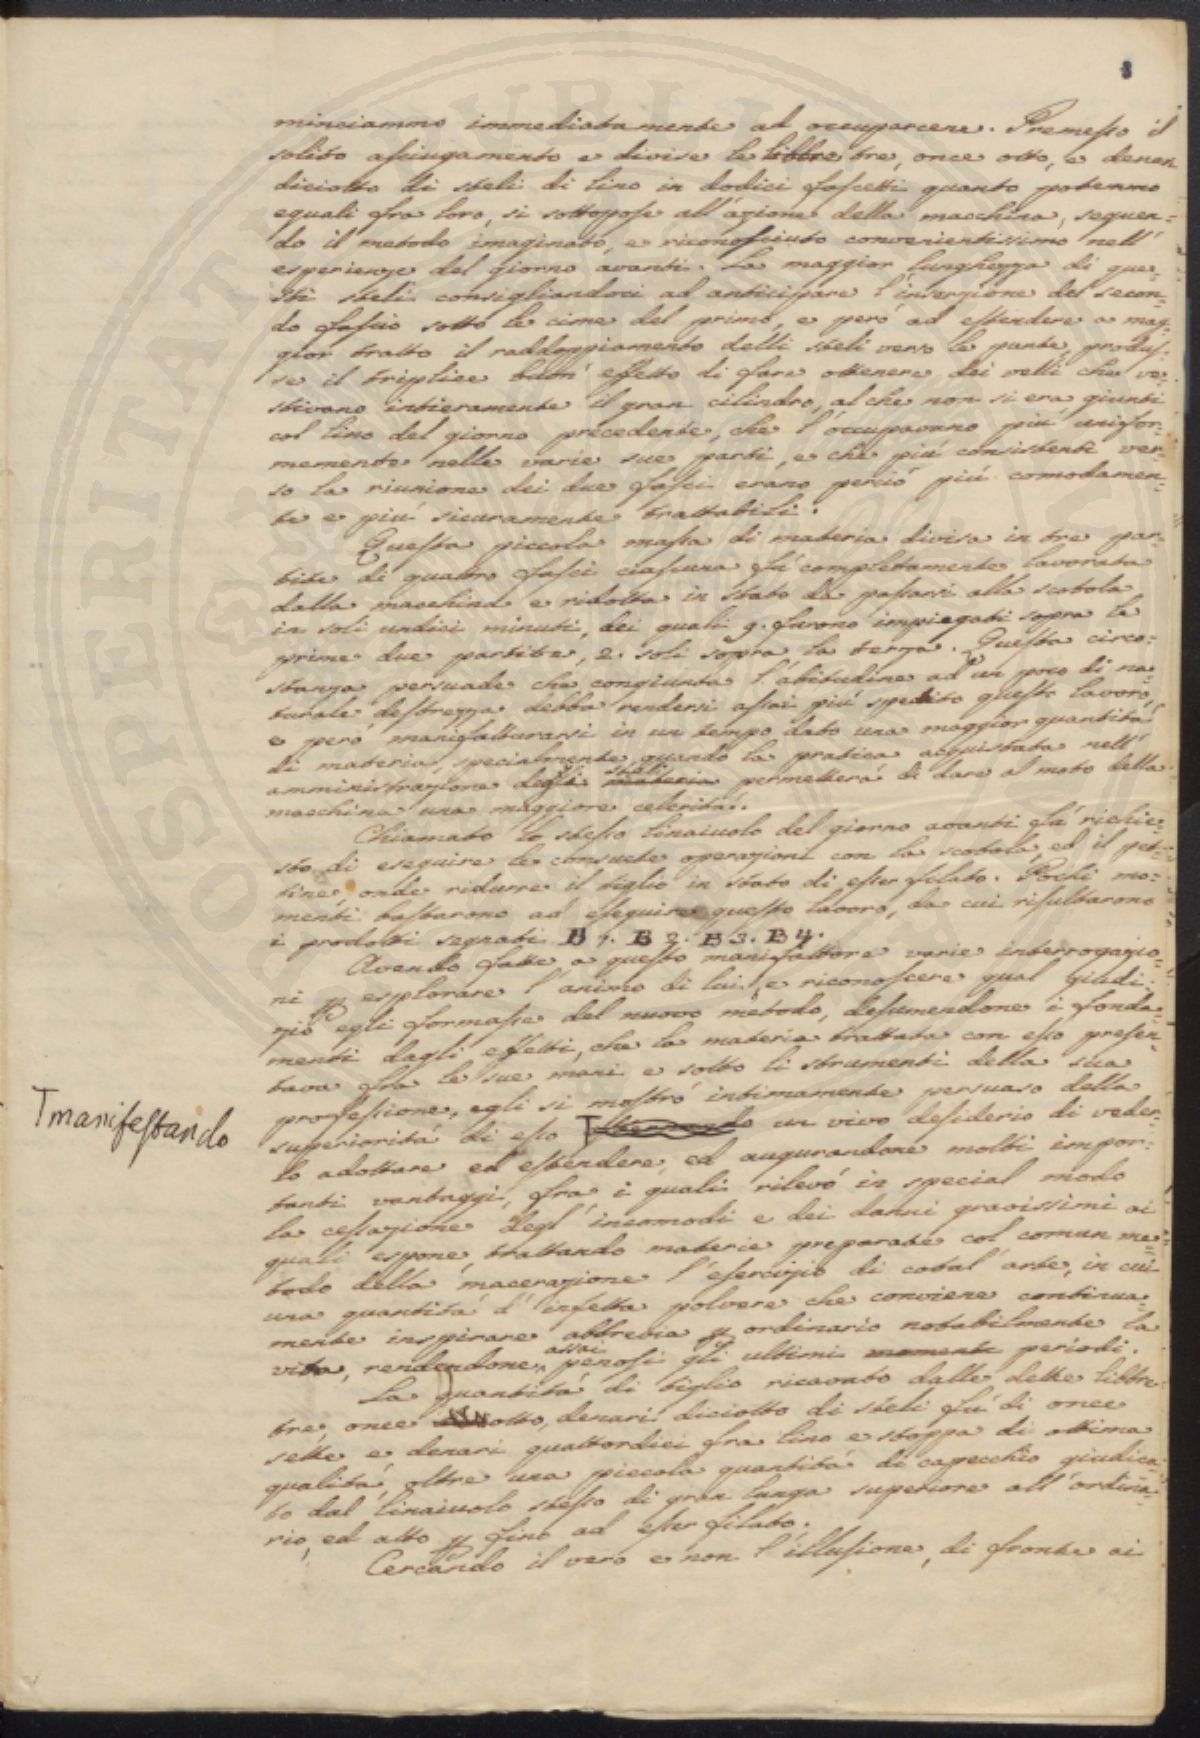 8
minciammo immediatamente ad occuparcene. Premesso il
solito asciugamento e divise le libbre tre, once otto, e denari
diciotto di steli di lino in dodici fascetti quanto potemmo
eguali fra loro, si sottopose all'azione della macchina, seguen=
do il metodo imaginato, e riconosciuto convenientissimo nell'
esperienze del giorno avanti. La maggior lunghezza di que=
sti steli consigliandoci ad anticipare l'inserzione del secon=
do fascio sotto le cime del primo, e però ad estendere a mag=
gior tratto il raddoppiamento delli steli verso le punte, produs=
se il triplice buon effetto di fare ottenere dei velli che ve=
stivano intieramente il gran cilindro, al che non si era giunti
col lino del giorno precedente, che l'occupavano più unifor=
memente nelle varie sue parti, e che più consistenti ver=
so la riunione dei due fasci erano perciò più comodamen=
te e più sicuramente trattabili.
Questa piccola massa di materia divisa in tre par=
tite di quattro fasci ciascuna fù completamente lavorata
dalla macchina e ridotta in stato da passarsi alla scotola
in soli undici minuti, dei quali 9. furono impiegati sopra le
prime due partite, 2. soli sopra la terza. Questa circo=
stanza persuade che congiunta l'abitudine ad un poco di na=
turale destrezza debba rendersi assai più spedito questo lavoro,
e però manifatturarsi in un tempo dato una maggior quantità
di materia, specialmente quando la pratica acquistata nell'
amministrazione degli steli materia permetterà di dare al moto della
macchina una maggiore celerità.
Chiamato lo stesso linaiuolo del giorno avanti fù richie=
sto di eseguire le consuete operazioni con la scotola, ed il pet=
tine, onde ridurre il tiglio in stato di esser filato. Pochi mo=
menti bastarono ad eseguire questo lavoro, da cui risultarono
i prodotti segnati B 1. B 2. B 3. B 4.
Avendo fatte a questo manifattore varie interrogazio=
ni p esplorare l'animo di lui, e riconoscere qual giudi=
zio egli formasse del nuovo metodo, desumendone i fonda=
menti dagli effetti, che la materia trattata con esso presen=
tava fra le sue mani e sotto li strumenti della sua
professione, egli si mostrò intimamente persuaso della
superiorità di esso T un vivo desiderio di veder=
T manifestando
lo adottare ed estendere, ed augurandone molti impor=
tanti vantaggi, fra i quali rilevò in special modo
la cessazione degl'incomodi e dei danni gravissimi ai
quali espone, trattando materie preparate col comun me=
todo della macerazione l'esercizio di cotal'arte, in cui
una quantità d'infetta polvere che conviene continua=
mente inspirare abbrevia p ordinario notabilmente la
vita, rendendone assai penosi gli ultimi momenti periodi.
La quantità di tiglio ricavato dalle dette libbre
tre, once otto, denari diciotto di steli fù di once
sette e denari quattordici fra lino e stoppa di ottima
qualità, oltre una piccola quantità di capecchio giudica=
to dal linaiuolo stesso di gran lunga superiore all'ordina=
rio, ed atto p fino ad esser filato.
Cercando il vero e non l'illusione, di fronte ai